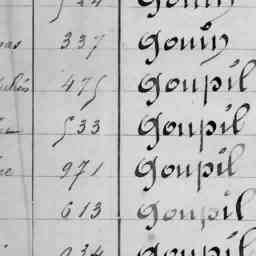 Gouin
337 Gouin
475 Goupil
533 Goupil
971 Goupil
613 Goupil
934 Goupil